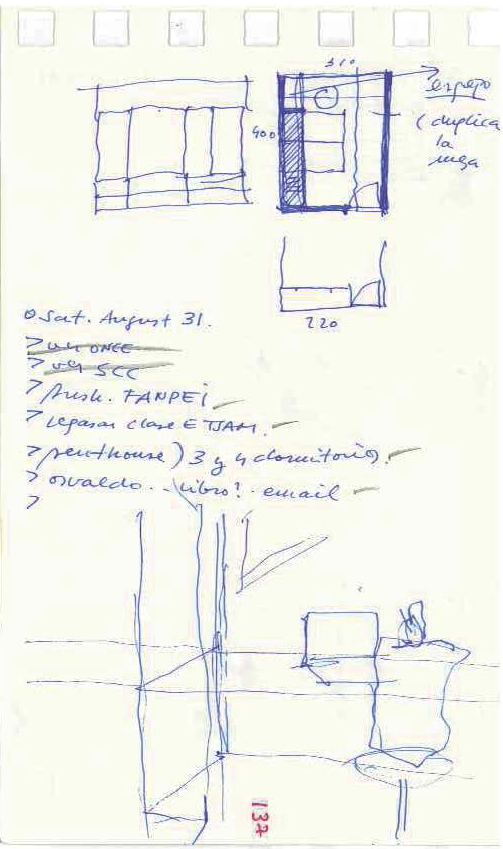 310
espejo
400
(duplica
la
mesa
220
Sat. August 31.
> ONCE
> SCC
> push. FANPEI
> repasar clase ETSAM.
> penthouse) 3 y 4 dormitorios.
> osvaldo.. libro? email
>
137